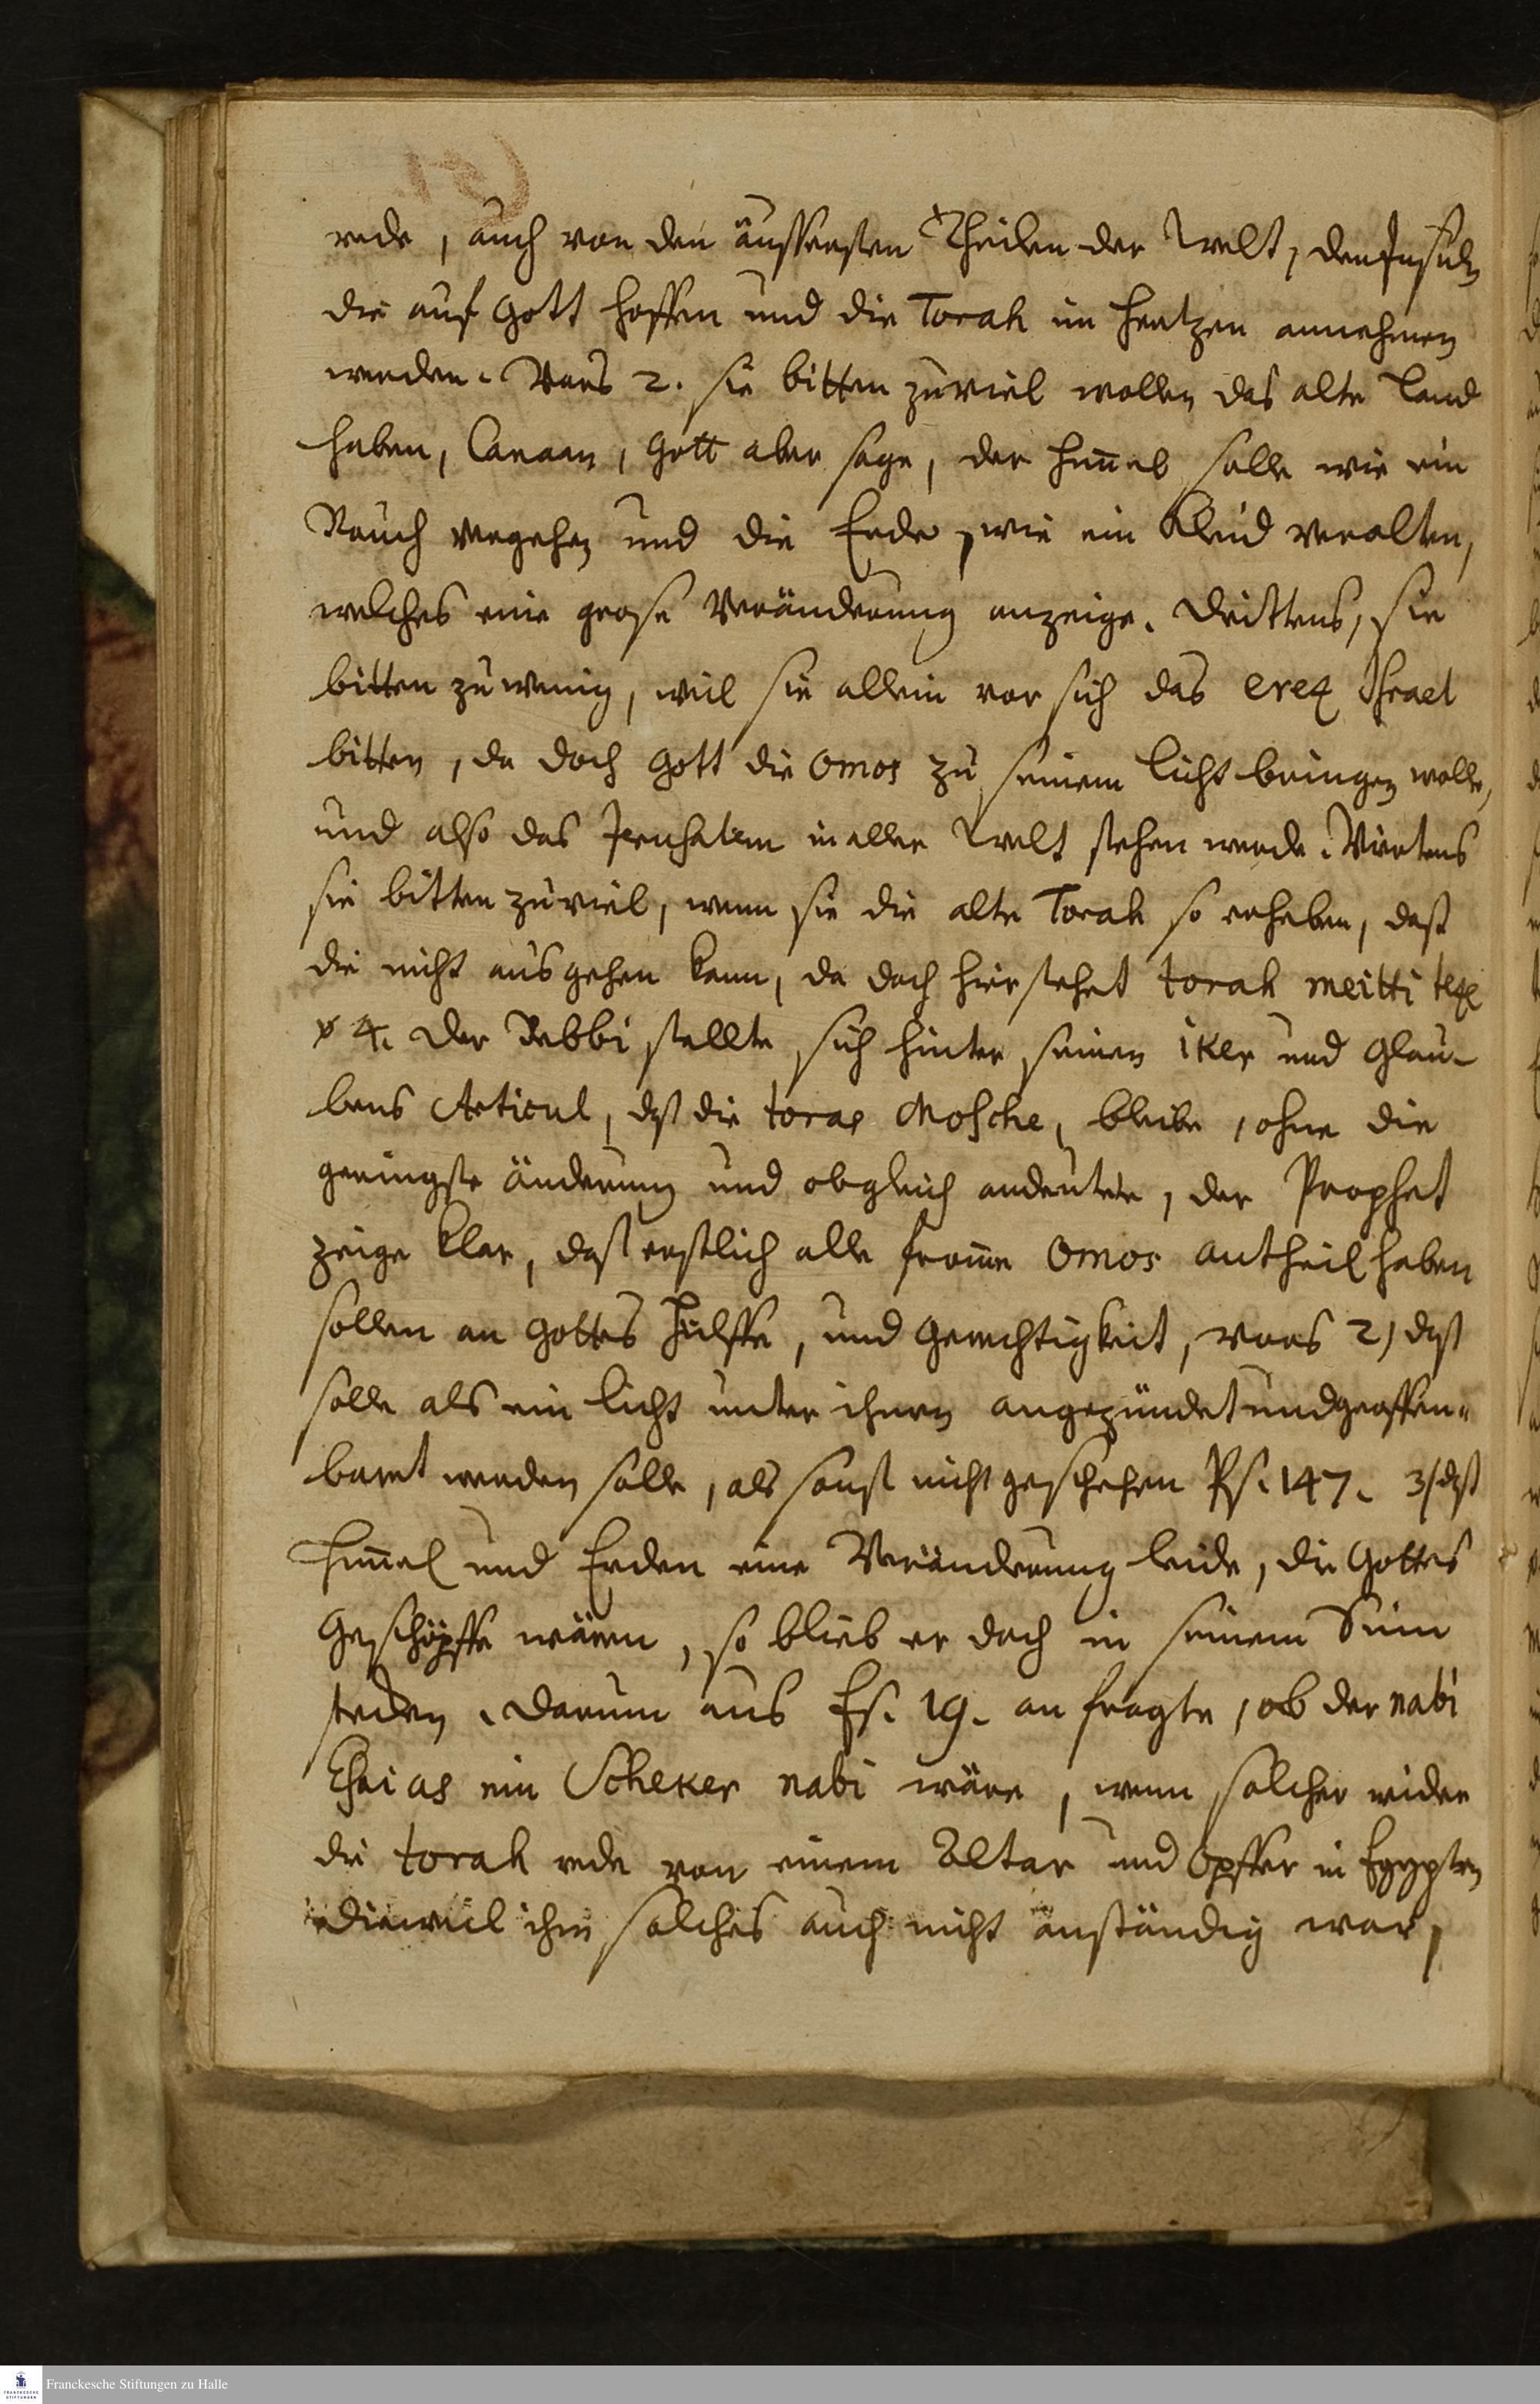 rede, auch von den äussersten Theilen der Welt, den Insuln
die auf Gott hoffen und die Torah im Hertzen annehmen
werden. Vors 2. sie bitten zuviel wollen das alte Land
haben, Canaan, Gott aber sage, der Him̄el solle wie ein
Rauch vergehen und die Erde, wie ein Kleid veralten,
welches eine grose Veränderung anzeige. Drittens, sie
bitten zu wenig, weil sie allein vor sich das erez Israel
bitten, da doch Gott die Omos zu seinem Licht bringen wolle,
und also das Jerusalem in aller Welt stehen werde. Viertens
sie bitten zuviel, wenn sie die alte Torah so erheben, daß
die nicht ausgehen kann, da doch hier stehet torah meitti teze
v 4. Der Rebbi stellte sich hinter seinen iker und Glau-
bens Articul, dß die toras Mosche, bleibe, ohne die
geringste änderung und obgleich andeutete, der Prophet
zeige klar, daß erstlich alle from̄e Omos antheil haben
sollen an Gottes Hülffe, und Gerechtigkeit, vors 2) dß
solle als ein Licht unter ihnen angezündet und geoffen-
baret werden solle, als sonst nicht geschehen Ps. 147. 3) dß
Him̄el und Erden eine Veränderung leide, die Gottes
Geschöpffe wären, so blieb er doch in seinem Sinn
stecken. Darum aus Es. 19. an fragte, ob der nabi
Esaias ein Scheker nabi wäre, wenn solcher wider
die torah rede von einem Altar und Opffer in Egypten
dieweil ihm solches auch nicht anständig war,
Franckesche Stiftungen zu Halle